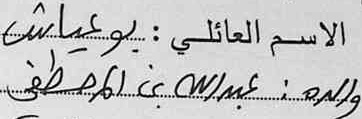 الاسم العائلي : بوعياش
والده : عبدالله بن المصطفى